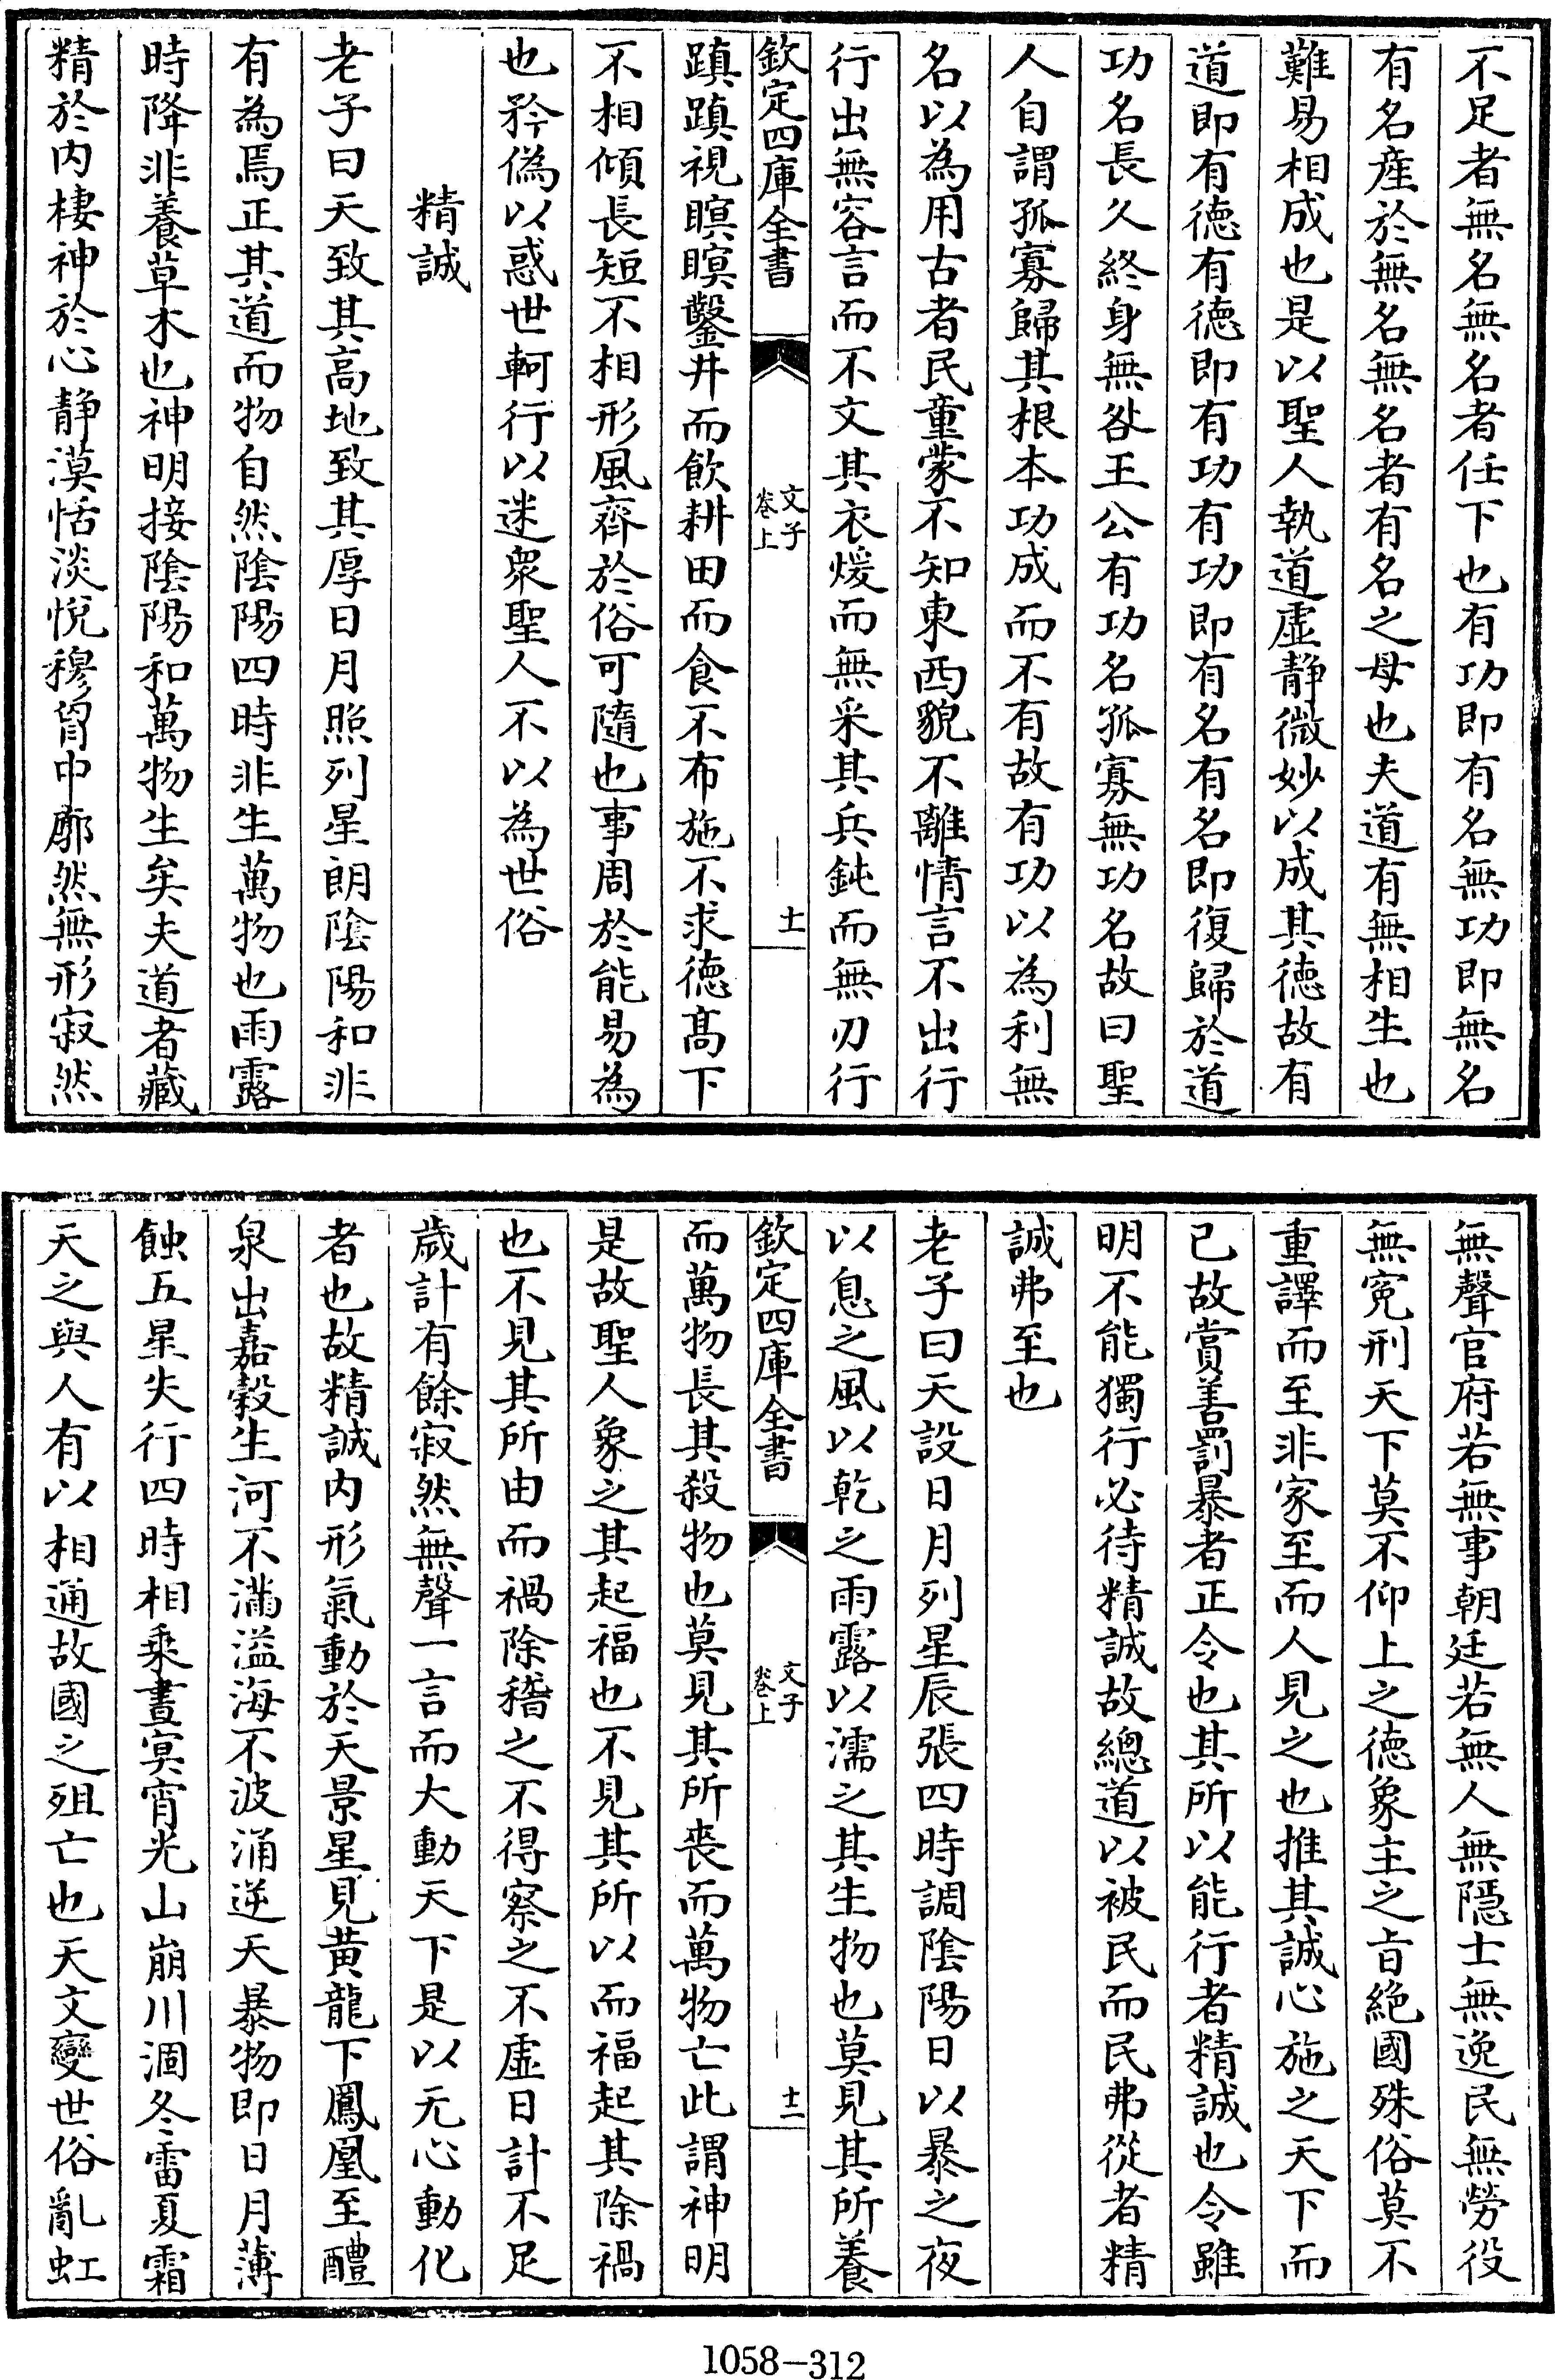 不足者無名無名者任下也有功即有名無功即無名
有名産於無名無名者有名之母也夫道有無相生也
難易相成也是以聖人執道虚静微妙以成其徳故有
道即有徳有徳即有功有功即有名有名即復歸於道
功名長久終身無咎王公有功名孤寡無功名故曰聖
人自謂孤寡歸其根本功成而不有故有功以為利無
名以為用古者民童蒙不知東西貌不離情言不出行
行出無容言而不文其衣煖而無采其兵鈍而無刃行
欽定四庫全書
文子
卷上
十一
蹎蹎視瞑瞑鑿井而飲耕田而食不布施不求徳髙下
不相傾長短不相形風齊於俗可隨也事周於能易為
也矜偽以惑世軻行以迷衆聖人不以為世俗
精誠
老子曰天致其高地致其厚日月照列星朗陰陽和非
有為焉正其道而物自然陰陽四時非生萬物也雨露
時降非養草木也神明接陰陽和萬物生矣夫道者藏
精於内棲神於心静漠恬淡悦穆胷中廓然無形寂然
無聲官府若無事朝廷若無人無隱士無逸民無勞役
無寃刑天下莫不仰上之徳象主之㫖絶國殊俗莫不
重譯而至非家至而人見之也推其誠心施之天下而
已故賞善罰暴者正令也其所以能行者精誠也令雖
明不能獨行必待精誠故總道以被民而民弗從者精
誠弗至也
老子曰天設日月列星辰張四時調陰陽日以暴之夜
以息之風以乾之雨露以濡之其生物也莫見其所養
欽定四庫全書
文子
卷上
十二
而萬物長其殺物也莫見其所喪而萬物亡此謂神明
是故聖人象之其起福也不見其所以而福起其除禍
也不見其所由而禍除稽之不得察之不虚日計不足
歲計有餘寂然無聲一言而大動天下是以无心動化
者也故精誠内形氣動於天景星見黄龍下鳳凰至醴
泉出嘉榖生河不滿溢海不波涌逆天暴物即日月薄
蝕五星失行四時相乘晝冥宵光山崩川涸冬雷夏霜
天之與人有以相通故國之殂亡也天文變世俗亂虹
1058-312